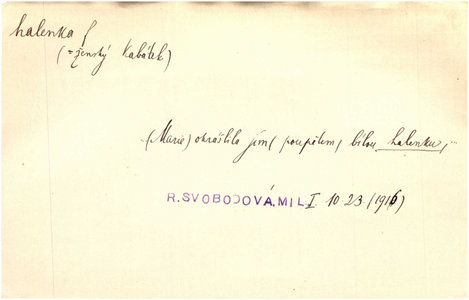 halenka f
(= ženský kabátek)
(Marie) okrášlila jím (poupětem) bílou halenku, ...
R. SVOBODOVÁ, MIL I 10 23 (1916)